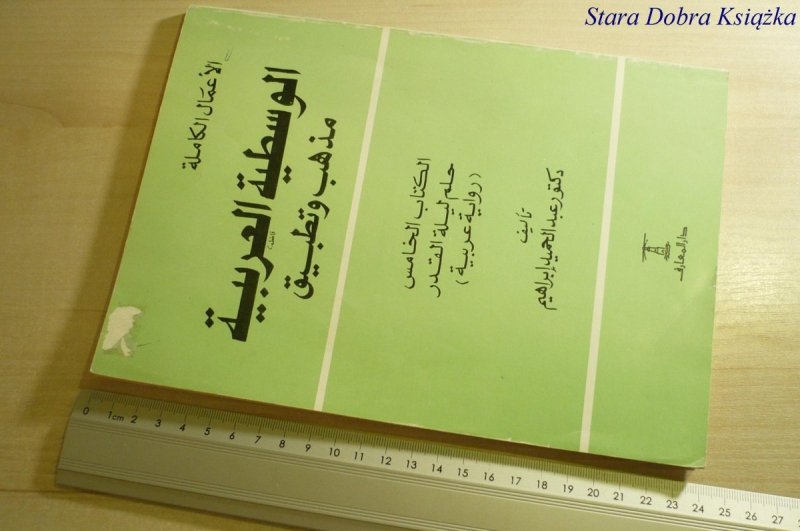 Stara Dobra Książka
الأعمال الكاملة
الوسطية العربية
مذهب وتطبيق
الكتاب الخامس
حلم ليلة القدر
(رواية عربية)
تأليف
دكتور عبد الحميد إبراهيم
دار المعارف
0 1cm 2 3 4 5 6 7 8 9 10 11 12 13 14 15 16 17 18 19 20 21 22 23 24 25 26 27